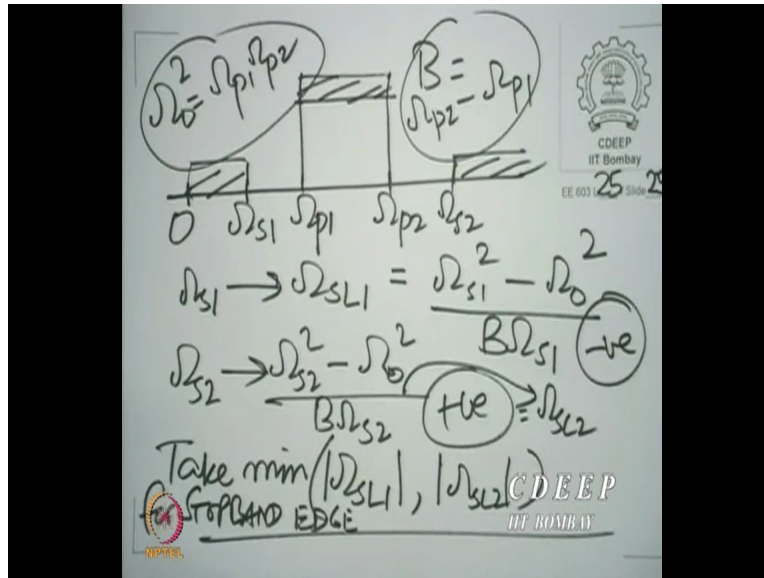 Ω₀² = Ωp1 Ωp2
B = Ωp2 - Ωp1
CDEEP
IIT Bombay
EE 603 L 25 Slide 25
0 Ωs1 Ωp1 Ωp2 Ωs2
Ωs1 → ΩSL1 = Ωs1² - Ω₀² / BΩs1 -ve
Ωs2 → Ωs2² - Ω₀² / BΩs2 +ve = ΩSL2
Take min (|ΩSL1|, |ΩSL2|)
for STOPBAND EDGE
CDEEP
IIT BOMBAY
NPTEL